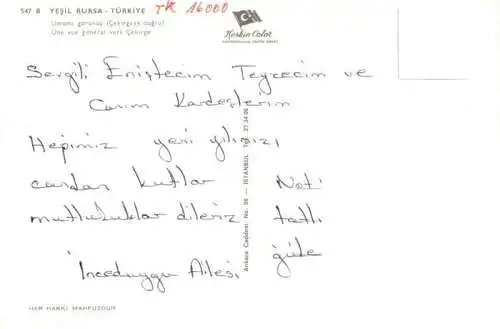 547 B YEŞİL BURSA - TÜRKİYE TR 16000
Umumi görünüş (Çekirgeye doğru)
Une vue général vers Çekirge
Keskin Color
Sevgili Eniştecim Teyzecim ve
Canım Kardeşlerim
Hepimiz yeni yılınızı
candan kutlar
mutluluklar dileriz
İnceduygu Ailesi
Not:
tatlı
güle
Ankara Caddesi No. 98 — İSTANBUL
HER HAKKI MAHFUZDUR